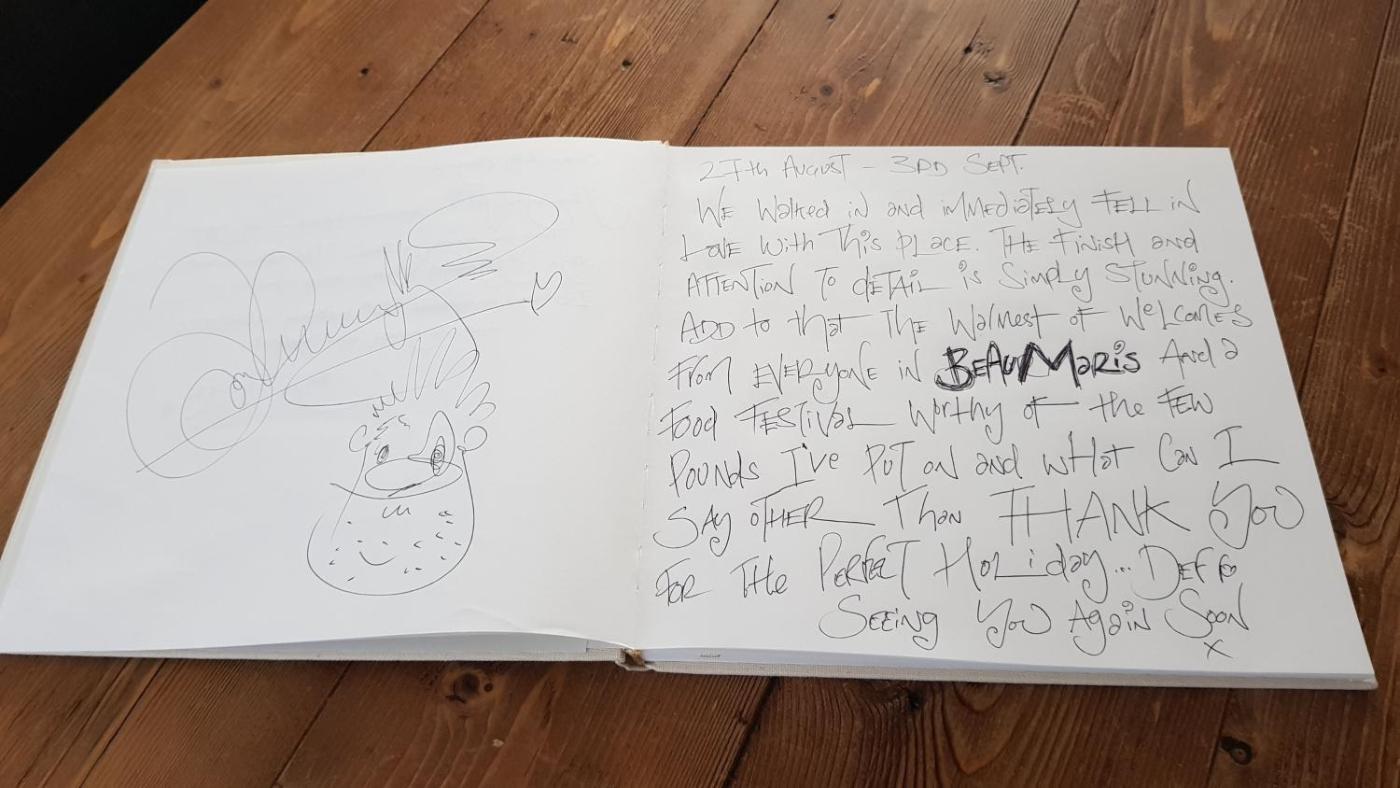 27th August - 3RD Sept.
We walked in and immediately fell in
Love with this place. The finish and
attention to detail is simply stunning.
Add to that the warmest of welcomes
from everyone in BEAUMARIS and a
food festival worthy of the few
pounds I've put on and what can I
say other than THANK YOU
for the perfect holiday... Deffo
seeing you again soon
x